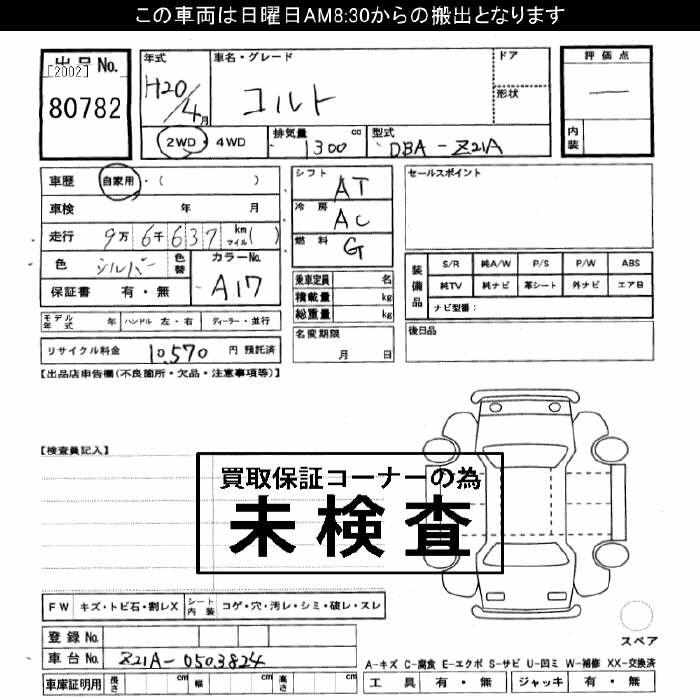 この車両は日曜日AM8:30からの搬出となります
出品No.
[2002]
80782
年式
H20/4月
車名・グレード
コルト
ドア
形状
評価点
―
内装
2WD・4WD
排気量 1300 cc
型式 DBA-Z21A
車歴 自家用・( )
車検 年 月
走行 9万6千637 km マイル( )
色 シルバー
色替
カラーNo. A17
保証書 有・無
シフト AT
冷房 AC
燃料 G
乗車定員 名
積載量 kg
総重量 kg
名変期限
月 日
セールスポイント
装備品
S/R 純A/W P/S P/W ABS
純TV 純ナビ 革シート 外ナビ エアB
ナビ型番:
後日品
モデル年式 年 ハンドル 左・右 ディーラー・並行
リサイクル料金 10,570 円 預託済
【出品店申告欄(不良箇所・欠品・注意事項等)】
【検査員記入】
買取保証コーナーの為
未検査
FW キズ・トビ石・割レX シート内装 コゲ・穴・汚レ・シミ・破レ・スレ
登録No.
車台No. Z21A-0503824
車庫証明用 長さ cm 幅 cm 高さ cm
スペア
A-キズ C-腐食 E-エクボ S-サビ U-凹ミ W-補修 XX-交換済
工具 有・無 ジャッキ 有・無